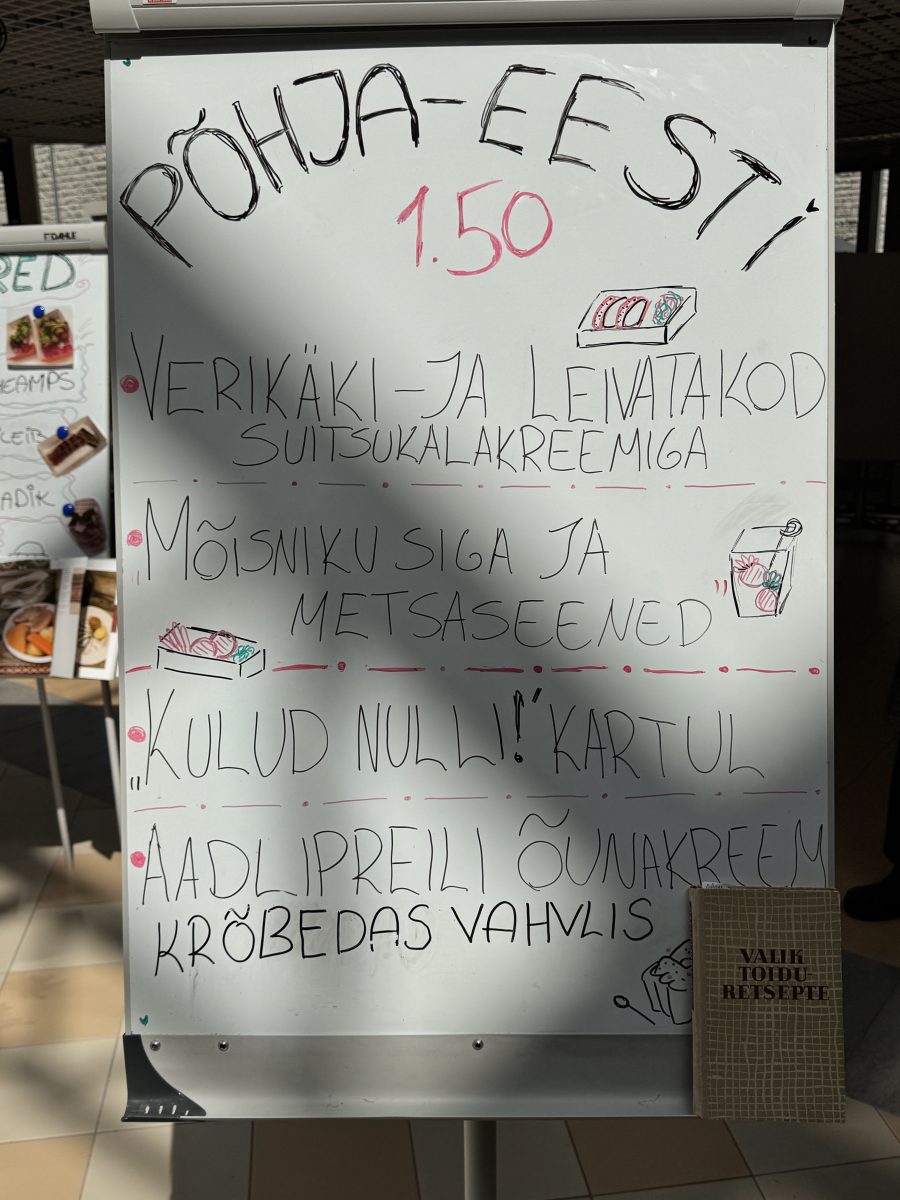 PÕHJA-EESTI
1.50
VERIKÄKI-JA LEIVATAKOD
SUITSUKALAKREEMIGA
MÕISNIKU SIGA JA
METSASEENED
„KULUD NULLI!" KARTUL
AADLIPREILI ÕUNAKREEM
KRÕBEDAS VAHVLIS
VALIK
TOIDU-
RETSEPTE
DAHLE